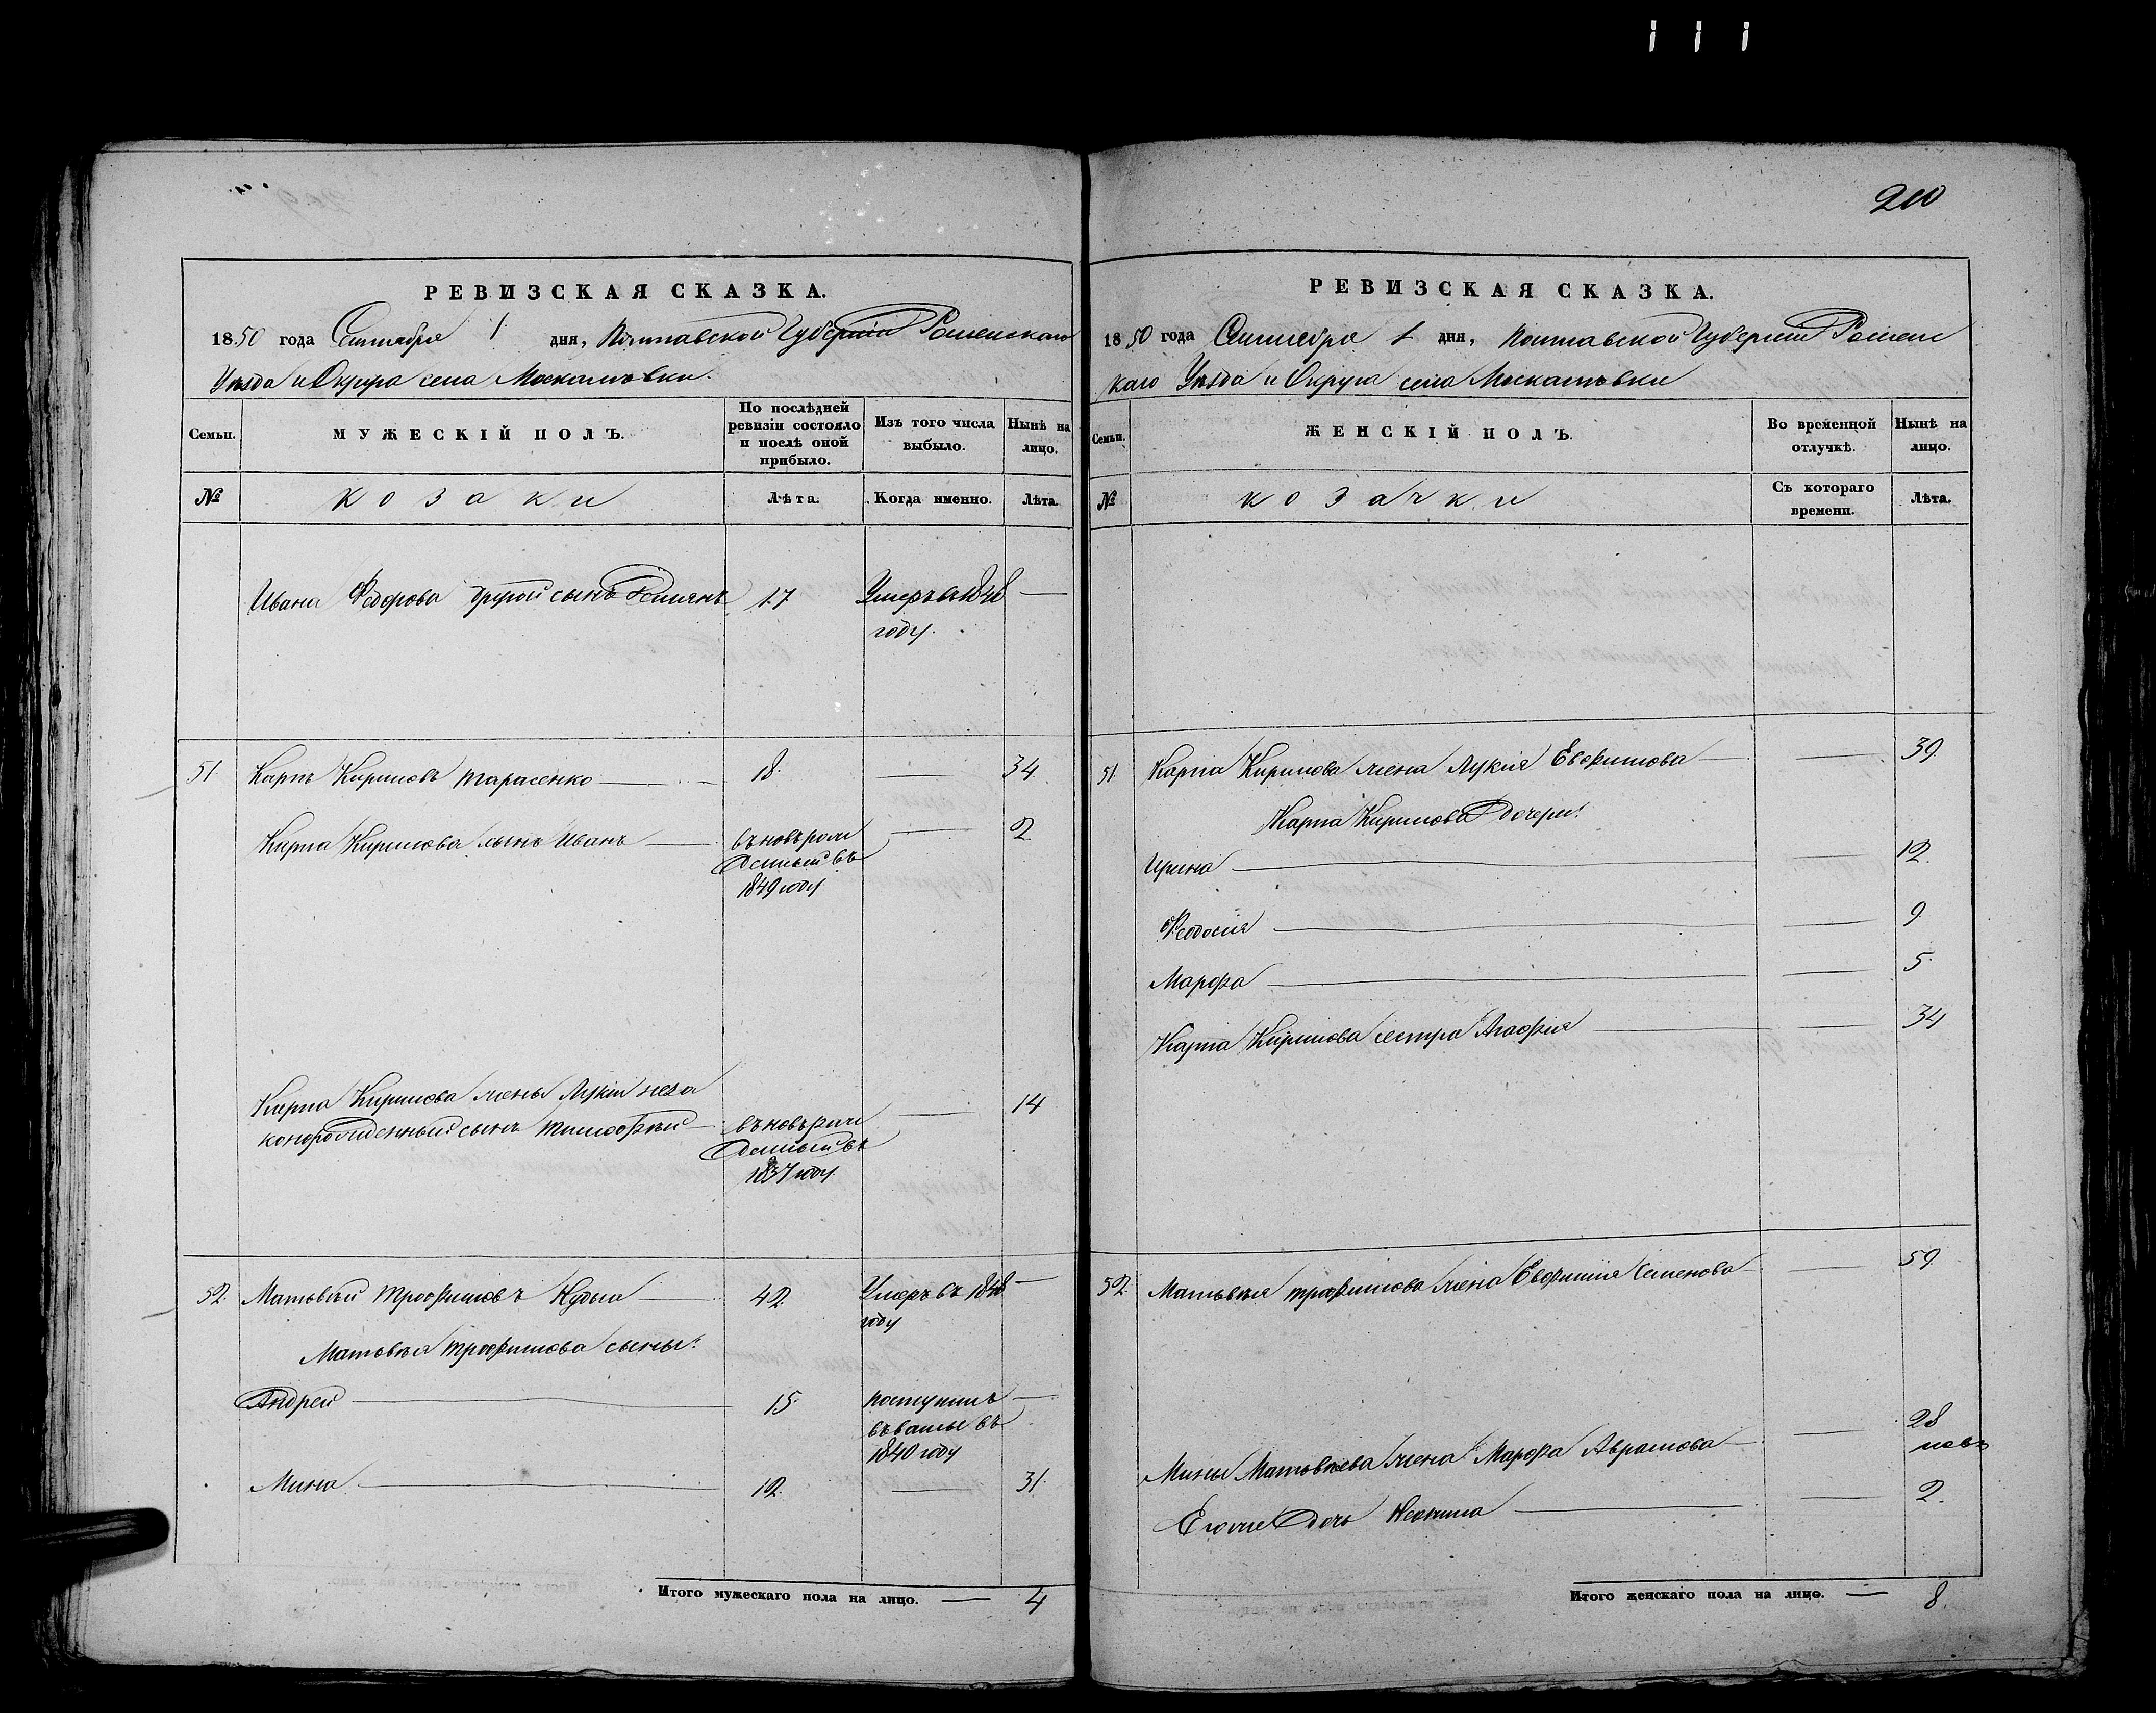 210
РЕВИЗСКАЯ СКАЗКА.
1850 года Сентября 1 дня, Полтавской Губерніи Роменскаго
Уѣзда и Округа села Москалювки.
Семьи.
МУЖЕСКІЙ ПОЛЪ.
По послѣдней ревизіи состояло и послѣ оной прибыло.
Изъ того числа выбыло.
Нынѣ на лицо.
№
козаки
Лѣта.
Когда именно.
Лѣта.
Ивана Федорова другой сынъ 17 Умеръ въ 1848 —
году.
51 Карпъ Кириловъ Тарасенко — 18. — 34
Карпа Кирилова сынъ Иванъ — въновьрож — 2
денный въ
1849 году
Карпа Кирилова жены Лукіи неза
конорожденный сынъ Тимофѣй — въновьрож — 14
денный въ
1837 году
52. Матвѣй Трофимовъ — 42. Умеръ въ 1848 —
году
Матвѣя Трофимова сыны:
Андрей — 15. поступилъ —
въ въ
1840 году
Мина — 12. — 31.
Итого мужескаго пола на лицо. — 4
РЕВИЗСКАЯ СКАЗКА.
1850 года Сентября 1 дня, Полтавской Губерніи Роменс
каго Уѣзда и Округа села Москалювки
Семьи.
ЖЕНСКІЙ ПОЛЪ.
Во временной отлучкѣ.
Нынѣ на лицо.
№
козачки
Съ котораго времени.
Лѣта.
51. Карпа Кирилова жена Лукія Евфимова — — 39.
Карпа Кирилова дочери:
Ирина — — 12.
Феодосія — — 9
Марфа — — 5.
Карпа Кирилова сестра Агафія — — 34
52. Матвѣя Трофимова жена Евфимія Семенова — 59.
Мины Матвѣева жена Марфа Аврамова — — 28
Ею же дочь — — 2.
Итого женскаго пола на лицо. — 8.